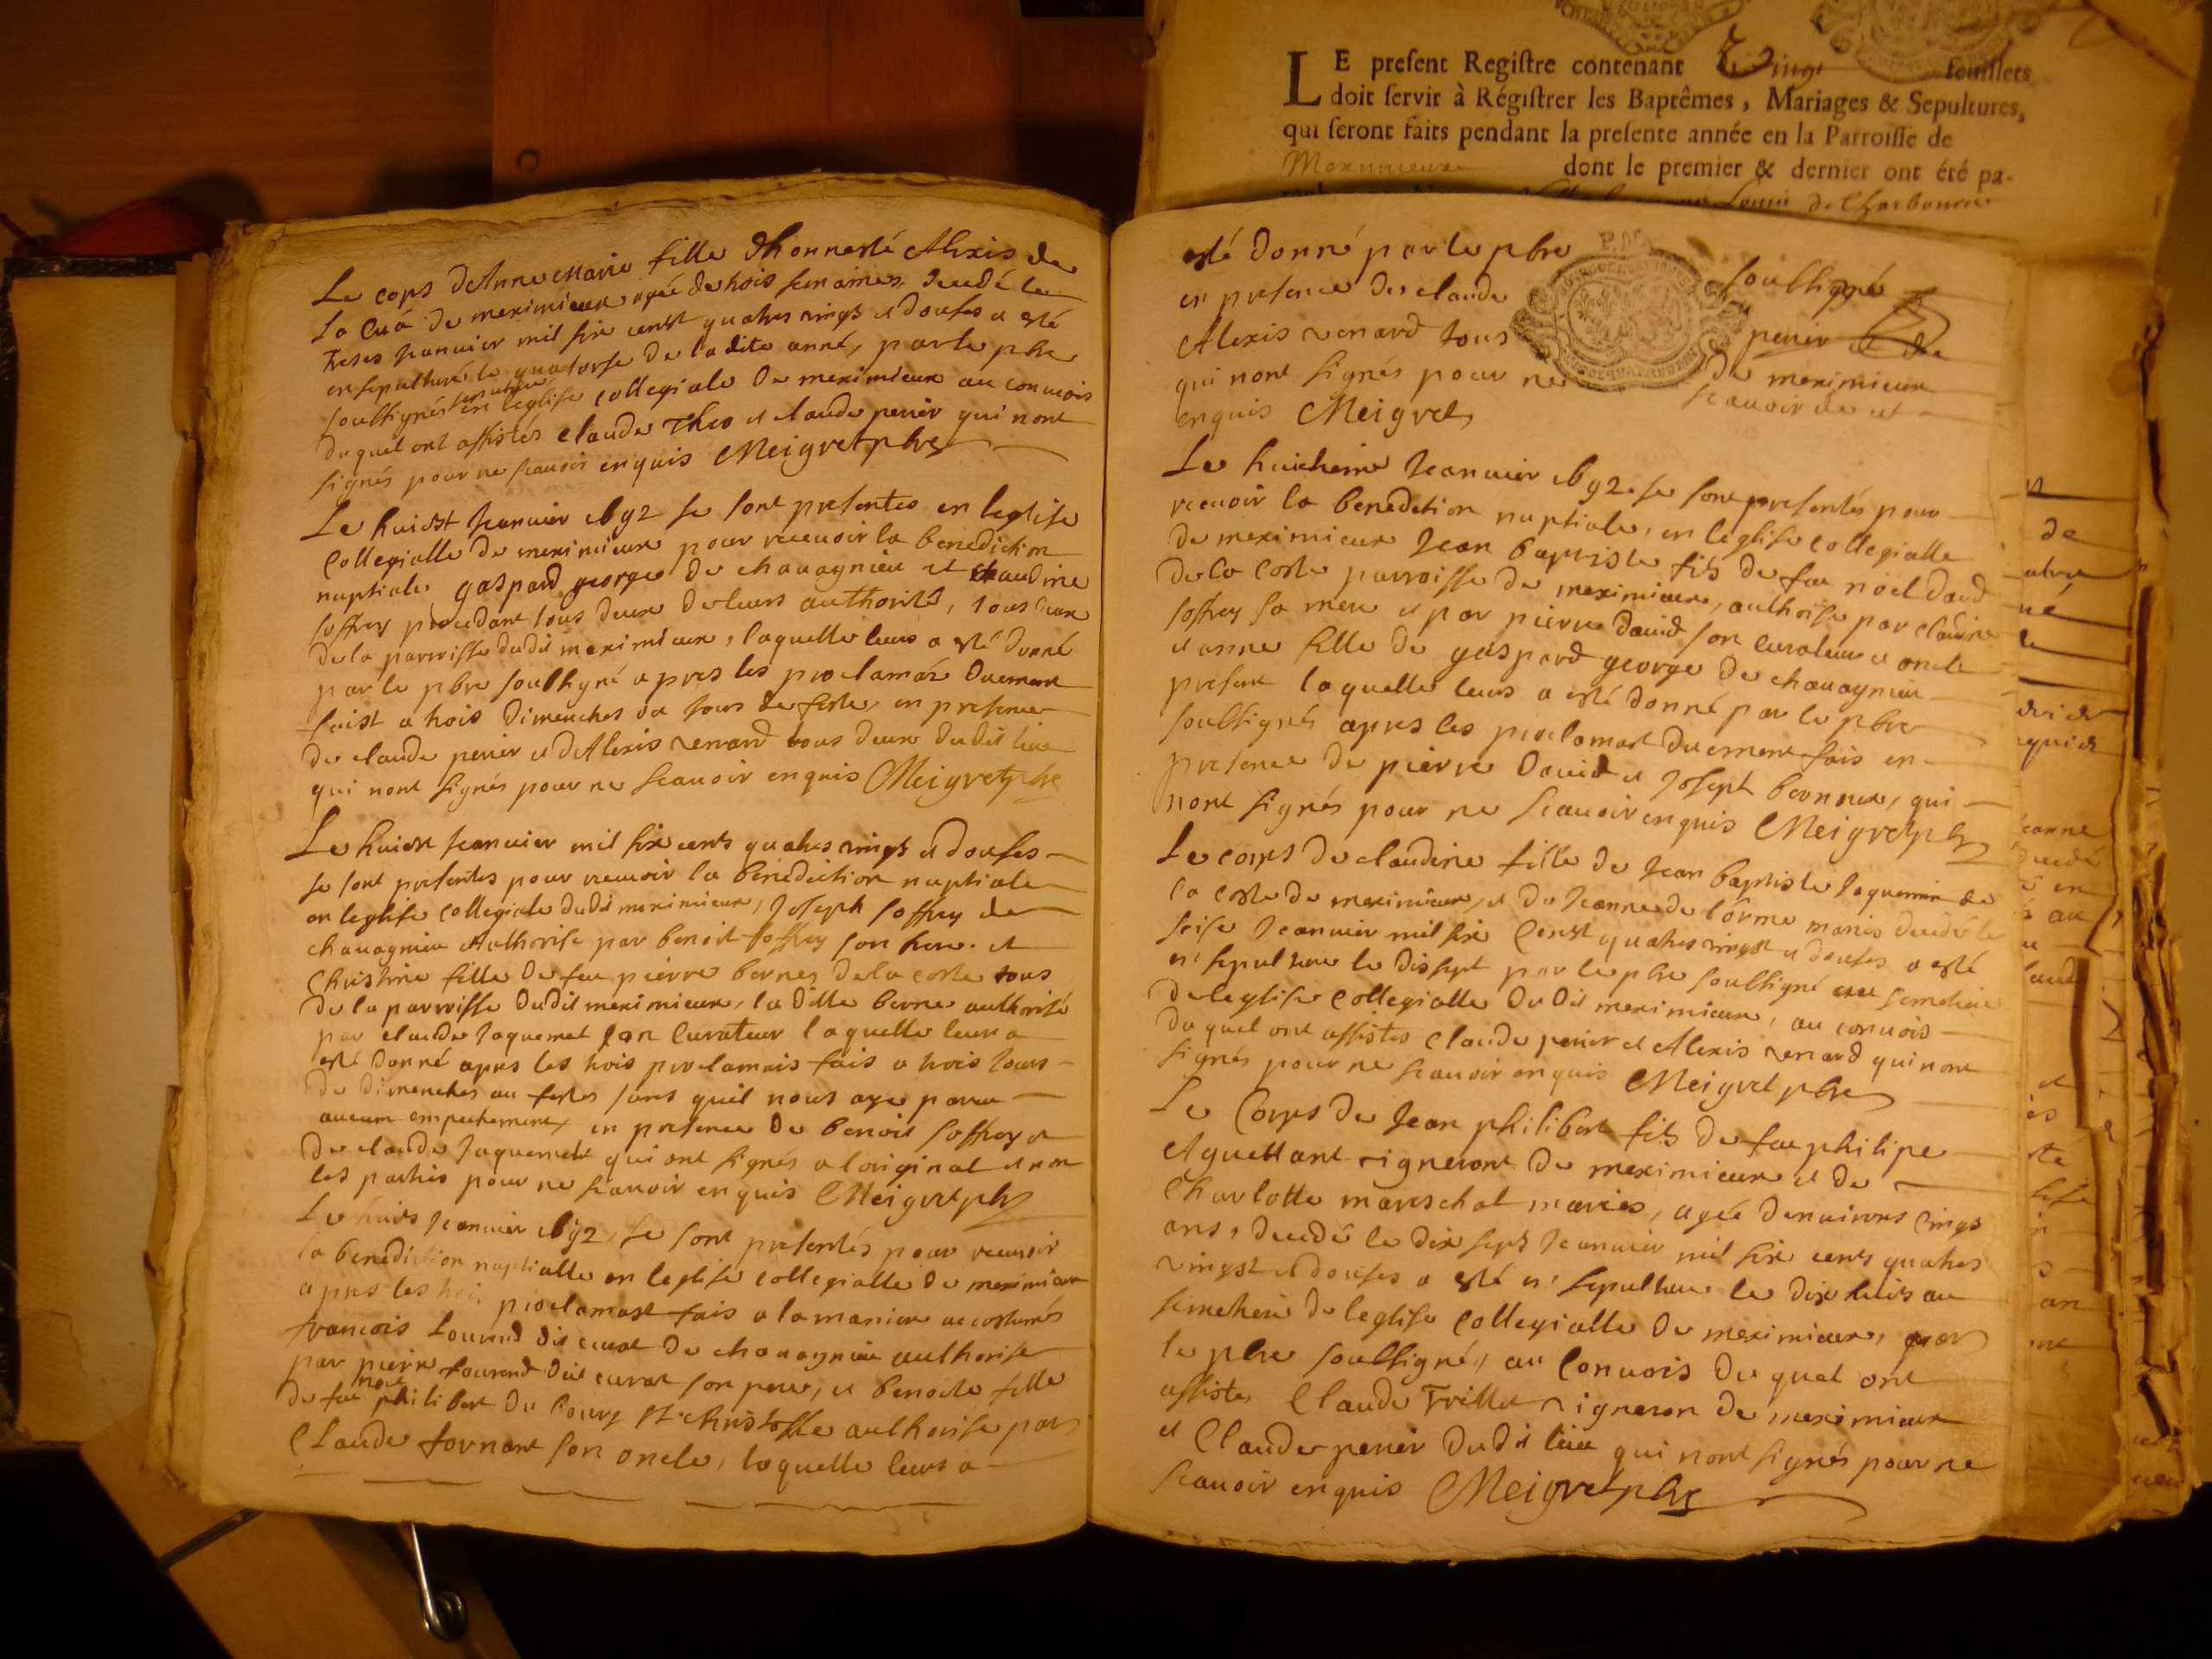 LE present Registre contenant Vingt feuillets
doit servir à Régistrer les Baptêmes, Mariages & Sepultures,
qui seront faits pendant la presente année en la Parroisse de
Meximieux dont le premier & dernier ont été pa-
Le cops dAnne Marie fille dhonnesté Alexis de
la de meximieux agée de trois semaines, decedé le
treses Jeanvier mil six centst quatres vingt et douses a esté
ensepulturé le quatorse de la dite anné, par le pbre
soubsignés en leglise collegiale de meximieux au convois
duquel ont assistés claude Theo et claude perier qui nont
signés pour ne scavoir enquis Meigret pbre
Le huictst Jeanvier 1692 se sont presentes en leglise
Collegialle de meximieux pour recevoir la benediction
nuptiale gaspard george de chavagnieu et claudine
soffrey procedant tous deux de leurs authorité, tous deux
de la parroisse dudit meximieux, laquelle leurs a esté donné
par le pbre soubsigné apres les proclamas duement
faist a trois dimenches ou jours de feste, en presence
de claude perier et dAlexis renard tous deux dudit lieu
qui nont signés pour ne scavoir enquis Meigret pbre
Le huict Jeanvier mil six cents quatres vingt et douses
se sont presentes pour recevoir la benediction nuptiale
en leglise collegiale dudit meximieux, Joseph soffrey de
chavagnieu Authorise par benoit soffrey son frere et
Christine fille de feu pierre bernes de la coste tous
de la parroisse dudit meximieux, la ditte berne authorisé
par claude Jaquemet son curateur laquelle leur a
esté donné apres les trois proclamais fais a trois jours
de dimenches ou festes sans quil nous aye paru
aucum empechement, en presence de benoit soffrey et
de claude Jaquemet qui ont signés a loriginal et non
les parties pour ne scavoir enquis Meigret pbre
Le huits Jeanvier 1692, se sont presentés pour recevoir
la benediction nuptialle en leglise collegialle de meximieux
apres les proclamast fais a la maniere accostumés
francois tourend dit curat de chavagnieu authorise
par pierre tourend dit curat son pere, et benoite fille
de feu philibert du bourg st christofle authorise par
Claude fornant son oncle, laquelle leurs a
esté donné par le pbre soubsigné
en presence de claude perier et de
Alexis renard tous de meximieux
qui nont signés pour ne scavoir de ce
enquis Meigret
Le huictieme Jeanvier 1692 se sont presentés pour
recevoir la benediction nuptiale, en leglise collegialle
de meximieux Jean baptiste fils de feu noel david
de la coste parroisse de meximieux, authorise par claudine
soffrey sa mere et par pierre david son curateur et oncle
et anne fille de gaspard george de chavagnieu
present laquelle leurs a esté donné par le pbre
soubsignés apres les proclamast duement fais en
presence de pierre david et Joseph bernner, qui
nont signés pour ne scavoir enquis Meigret pbre
Le corps de claudine fille de Jean baptiste Jaquemin de
la coste de meximieux, et de Jeanne de lorme mariés decedé le
seise Jeanvier mil six Centst quatres vingst et douses a esté
en sepulture le dissept par le pbre soubsigné au semetiere
de leglise collegialle dudit meximieux, au convois
duquel ont assistes claude perier et Alexis renard qui nont
signés pour ne scavoir enquis Meigret pbre
Le Corps de Jean philibert fils de feu philipe
Aguettant vigneront de meximieux et de
Charlotte mareschal mariés, agée denvirons cings
ans, decedé le dix sept Jeanvier mil six cents quatres
vingst et douses a esté en sepulture le dix huits au
semetiere de leglise collegialle de meximieux, par
le pbre soubsigné, au Convois du quel ont
assistes Claude Trillet vigneron de meximieux
et Claude perier dudit lieu qui nont signés pour ne
scavoir enquis Meigret pbre